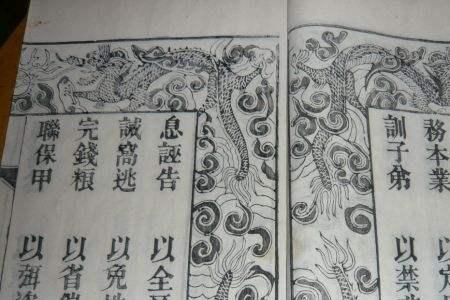 務本業　以定
訓子弟　以禁
息誣告　以全
誡窩逃　以免
完錢糧　以省
聯保甲　以弭